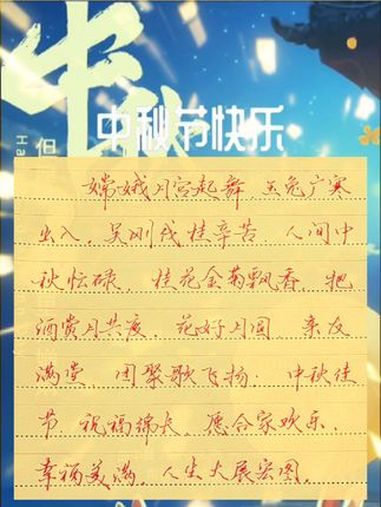 中秋
中秋节快乐
但
Ha
嫦娥月宫起舞,玉兔广寒
出入。吴刚伐桂辛苦,人间中
秋忙碌。桂花金菊飘香,把
酒赏月共度。花好月圆,亲友
满堂,团聚歌飞扬。中秋佳
节,祝福绵长,愿合家欢乐,
幸福美满,人生大展宏图。